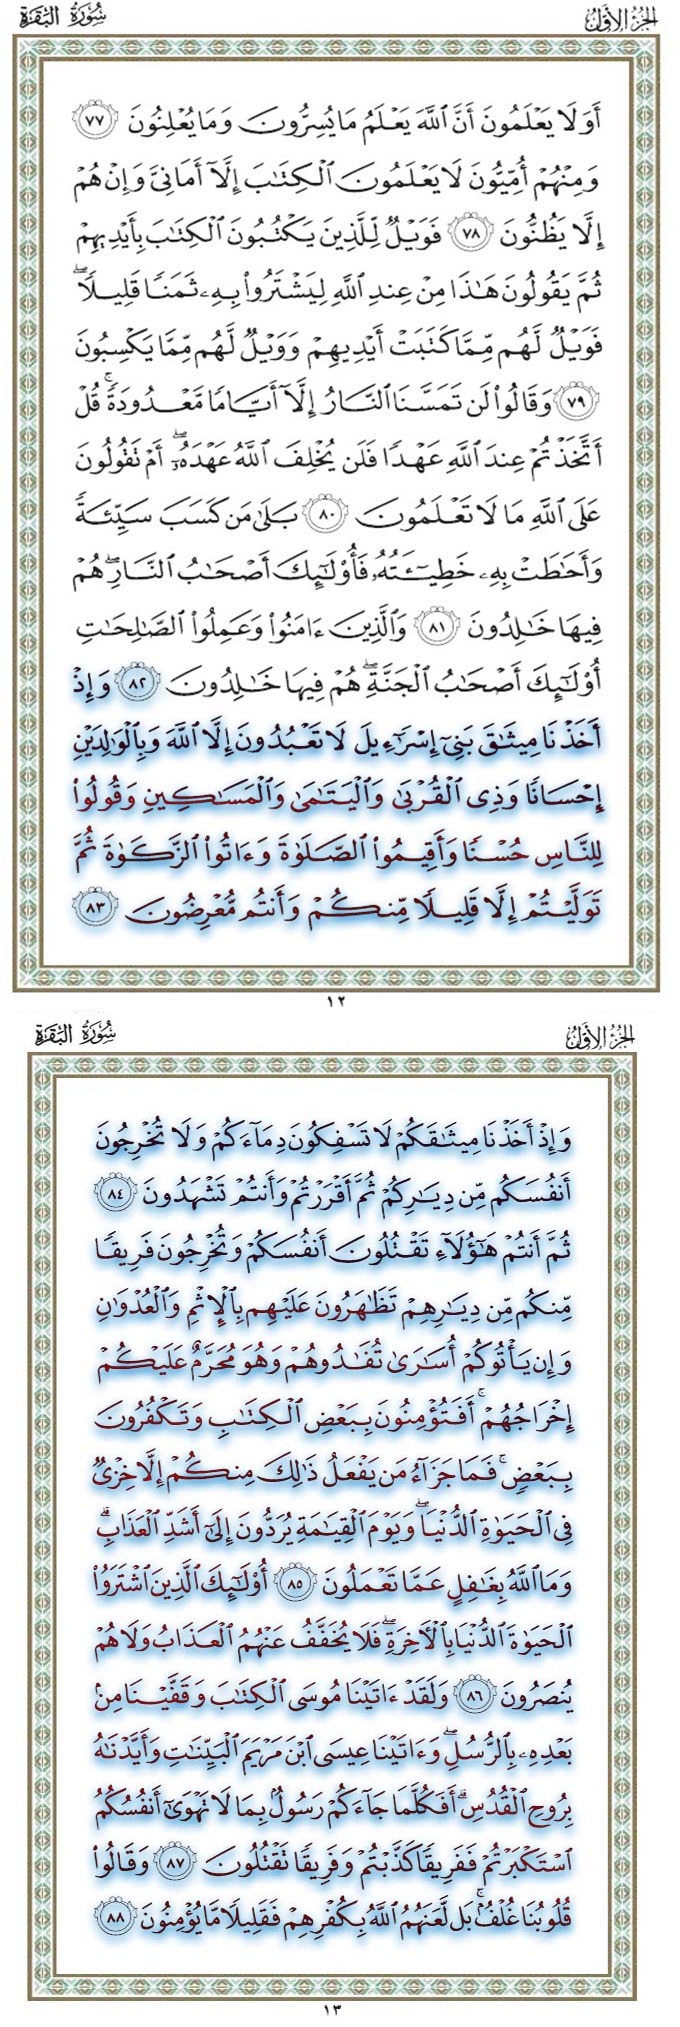 الجزء الأول سورة البقرة
أَوَلَا يَعْلَمُونَ أَنَّ ٱللَّهَ يَعْلَمُ مَا يُسِرُّونَ وَمَا يُعْلِنُونَ ٧٧
وَمِنْهُمْ أُمِّيُّونَ لَا يَعْلَمُونَ ٱلْكِتَٰبَ إِلَّآ أَمَانِىَّ وَإِنْ هُمْ
إِلَّا يَظُنُّونَ ٧٨ فَوَيْلٌ لِّلَّذِينَ يَكْتُبُونَ ٱلْكِتَٰبَ بِأَيْدِيهِمْ
ثُمَّ يَقُولُونَ هَٰذَا مِنْ عِندِ ٱللَّهِ لِيَشْتَرُوا۟ بِهِۦ ثَمَنًا قَلِيلًا ۖ
فَوَيْلٌ لَّهُم مِّمَّا كَتَبَتْ أَيْدِيهِمْ وَوَيْلٌ لَّهُم مِّمَّا يَكْسِبُونَ
٧٩ وَقَالُوا۟ لَن تَمَسَّنَا ٱلنَّارُ إِلَّآ أَيَّامًا مَّعْدُودَةً ۚ قُلْ
أَتَّخَذْتُمْ عِندَ ٱللَّهِ عَهْدًا فَلَن يُخْلِفَ ٱللَّهُ عَهْدَهُۥٓ ۖ أَمْ تَقُولُونَ
عَلَى ٱللَّهِ مَا لَا تَعْلَمُونَ ٨٠ بَلَىٰ مَن كَسَبَ سَيِّئَةً
وَأَحَٰطَتْ بِهِۦ خَطِيٓـَٔتُهُۥ فَأُو۟لَٰٓئِكَ أَصْحَٰبُ ٱلنَّارِ ۖ هُمْ
فِيهَا خَٰلِدُونَ ٨١ وَٱلَّذِينَ ءَامَنُوا۟ وَعَمِلُوا۟ ٱلصَّٰلِحَٰتِ
أُو۟لَٰٓئِكَ أَصْحَٰبُ ٱلْجَنَّةِ ۖ هُمْ فِيهَا خَٰلِدُونَ ٨٢ وَإِذْ
أَخَذْنَا مِيثَٰقَ بَنِىٓ إِسْرَٰٓءِيلَ لَا تَعْبُدُونَ إِلَّا ٱللَّهَ وَبِٱلْوَٰلِدَيْنِ
إِحْسَانًا وَذِى ٱلْقُرْبَىٰ وَٱلْيَتَٰمَىٰ وَٱلْمَسَٰكِينِ وَقُولُوا۟
لِلنَّاسِ حُسْنًا وَأَقِيمُوا۟ ٱلصَّلَوٰةَ وَءَاتُوا۟ ٱلزَّكَوٰةَ ثُمَّ
تَوَلَّيْتُمْ إِلَّا قَلِيلًا مِّنكُمْ وَأَنتُم مُّعْرِضُونَ ٨٣
١٢
الجزء الأول سورة البقرة
وَإِذْ أَخَذْنَا مِيثَٰقَكُمْ لَا تَسْفِكُونَ دِمَآءَكُمْ وَلَا تُخْرِجُونَ
أَنفُسَكُم مِّن دِيَٰرِكُمْ ثُمَّ أَقْرَرْتُمْ وَأَنتُمْ تَشْهَدُونَ ٨٤
ثُمَّ أَنتُمْ هَٰٓؤُلَآءِ تَقْتُلُونَ أَنفُسَكُمْ وَتُخْرِجُونَ فَرِيقًا
مِّنكُم مِّن دِيَٰرِهِمْ تَظَٰهَرُونَ عَلَيْهِم بِٱلْإِثْمِ وَٱلْعُدْوَٰنِ
وَإِن يَأْتُوكُمْ أُسَٰرَىٰ تُفَٰدُوهُمْ وَهُوَ مُحَرَّمٌ عَلَيْكُمْ
إِخْرَاجُهُمْ ۚ أَفَتُؤْمِنُونَ بِبَعْضِ ٱلْكِتَٰبِ وَتَكْفُرُونَ
بِبَعْضٍ ۚ فَمَا جَزَآءُ مَن يَفْعَلُ ذَٰلِكَ مِنكُمْ إِلَّا خِزْىٌ
فِى ٱلْحَيَوٰةِ ٱلدُّنْيَا ۖ وَيَوْمَ ٱلْقِيَٰمَةِ يُرَدُّونَ إِلَىٰٓ أَشَدِّ ٱلْعَذَابِ ۗ
وَمَا ٱللَّهُ بِغَٰفِلٍ عَمَّا تَعْمَلُونَ ٨٥ أُو۟لَٰٓئِكَ ٱلَّذِينَ ٱشْتَرَوُا۟
ٱلْحَيَوٰةَ ٱلدُّنْيَا بِٱلْءَاخِرَةِ ۖ فَلَا يُخَفَّفُ عَنْهُمُ ٱلْعَذَابُ وَلَا هُمْ
يُنصَرُونَ ٨٦ وَلَقَدْ ءَاتَيْنَا مُوسَى ٱلْكِتَٰبَ وَقَفَّيْنَا مِنۢ
بَعْدِهِۦ بِٱلرُّسُلِ ۖ وَءَاتَيْنَا عِيسَى ٱبْنَ مَرْيَمَ ٱلْبَيِّنَٰتِ وَأَيَّدْنَٰهُ
بِرُوحِ ٱلْقُدُسِ ۗ أَفَكُلَّمَا جَآءَكُمْ رَسُولٌۢ بِمَا لَا تَهْوَىٰٓ أَنفُسُكُمُ
ٱسْتَكْبَرْتُمْ فَفَرِيقًا كَذَّبْتُمْ وَفَرِيقًا تَقْتُلُونَ ٨٧ وَقَالُوا۟
قُلُوبُنَا غُلْفٌۢ ۚ بَل لَّعَنَهُمُ ٱللَّهُ بِكُفْرِهِمْ فَقَلِيلًا مَّا يُؤْمِنُونَ ٨٨
١٣